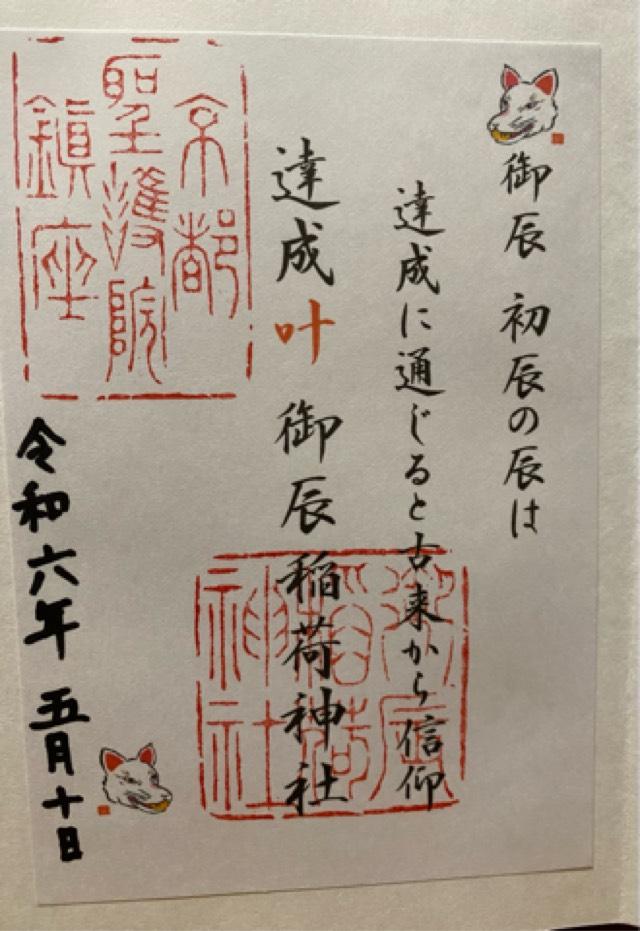 御辰 初辰の辰は
達成に通じると古来から信仰
達成叶 御辰稲荷神社
御辰
稲荷
神社
京都
聖護院
鎮座
令和六年 五月十日